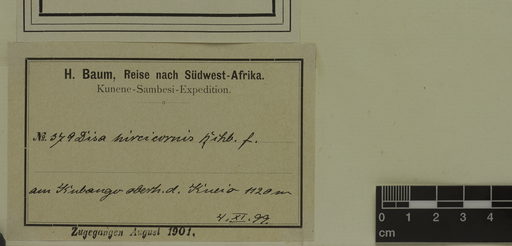 H. Baum, Reise nach Südwest-Afrika.
Kunene-Sambesi-Expedition.
No. 379 Disa hircicornis Rchb. f.
am Kubango oberh. d. Kueio 1120 m
4. XI. 99.
Zugegangen August 1901.
0 1 2 3 4
cm